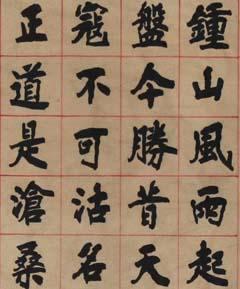 鍾山風雨起
盤今勝昔天
寇不可沽名
正道是滄桑